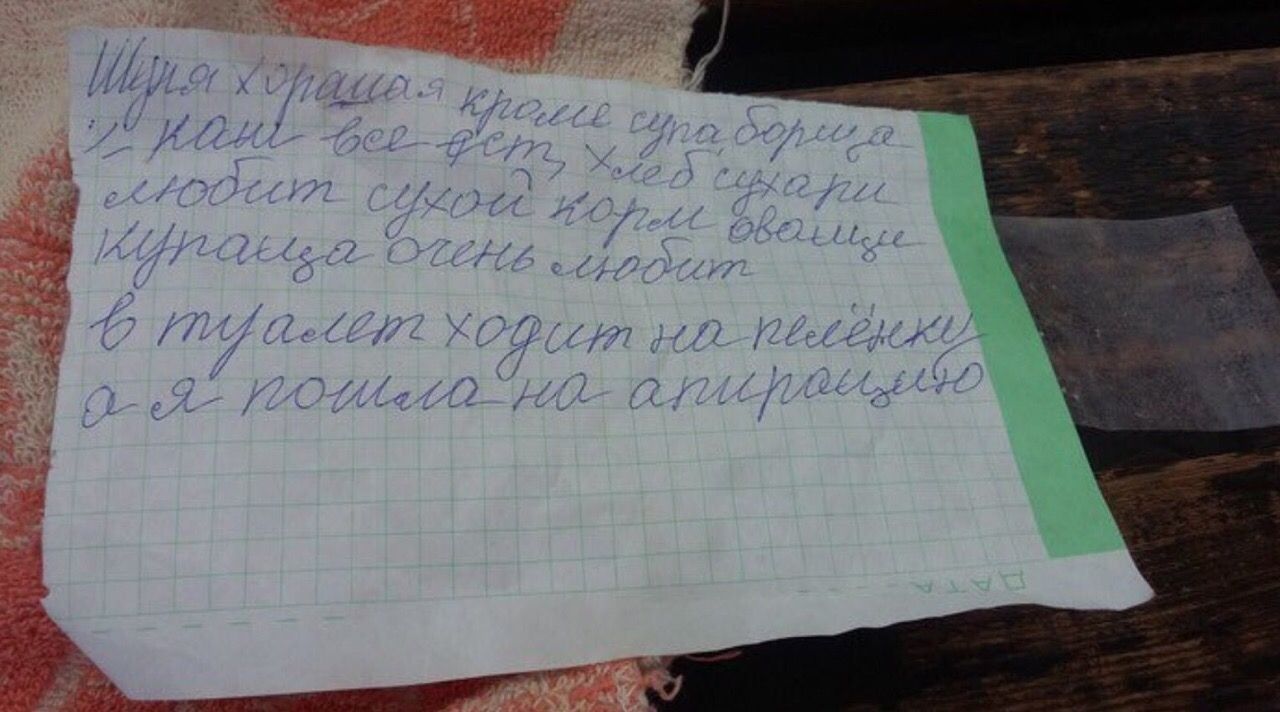 Шуля хорашая кроме супа, борща
и каш все ест, хлеб, сухари
любит сухой корм овощи
купаца очень любит
в туалет ходит на пелёнку
а я пошла на апирацию
ДАТА